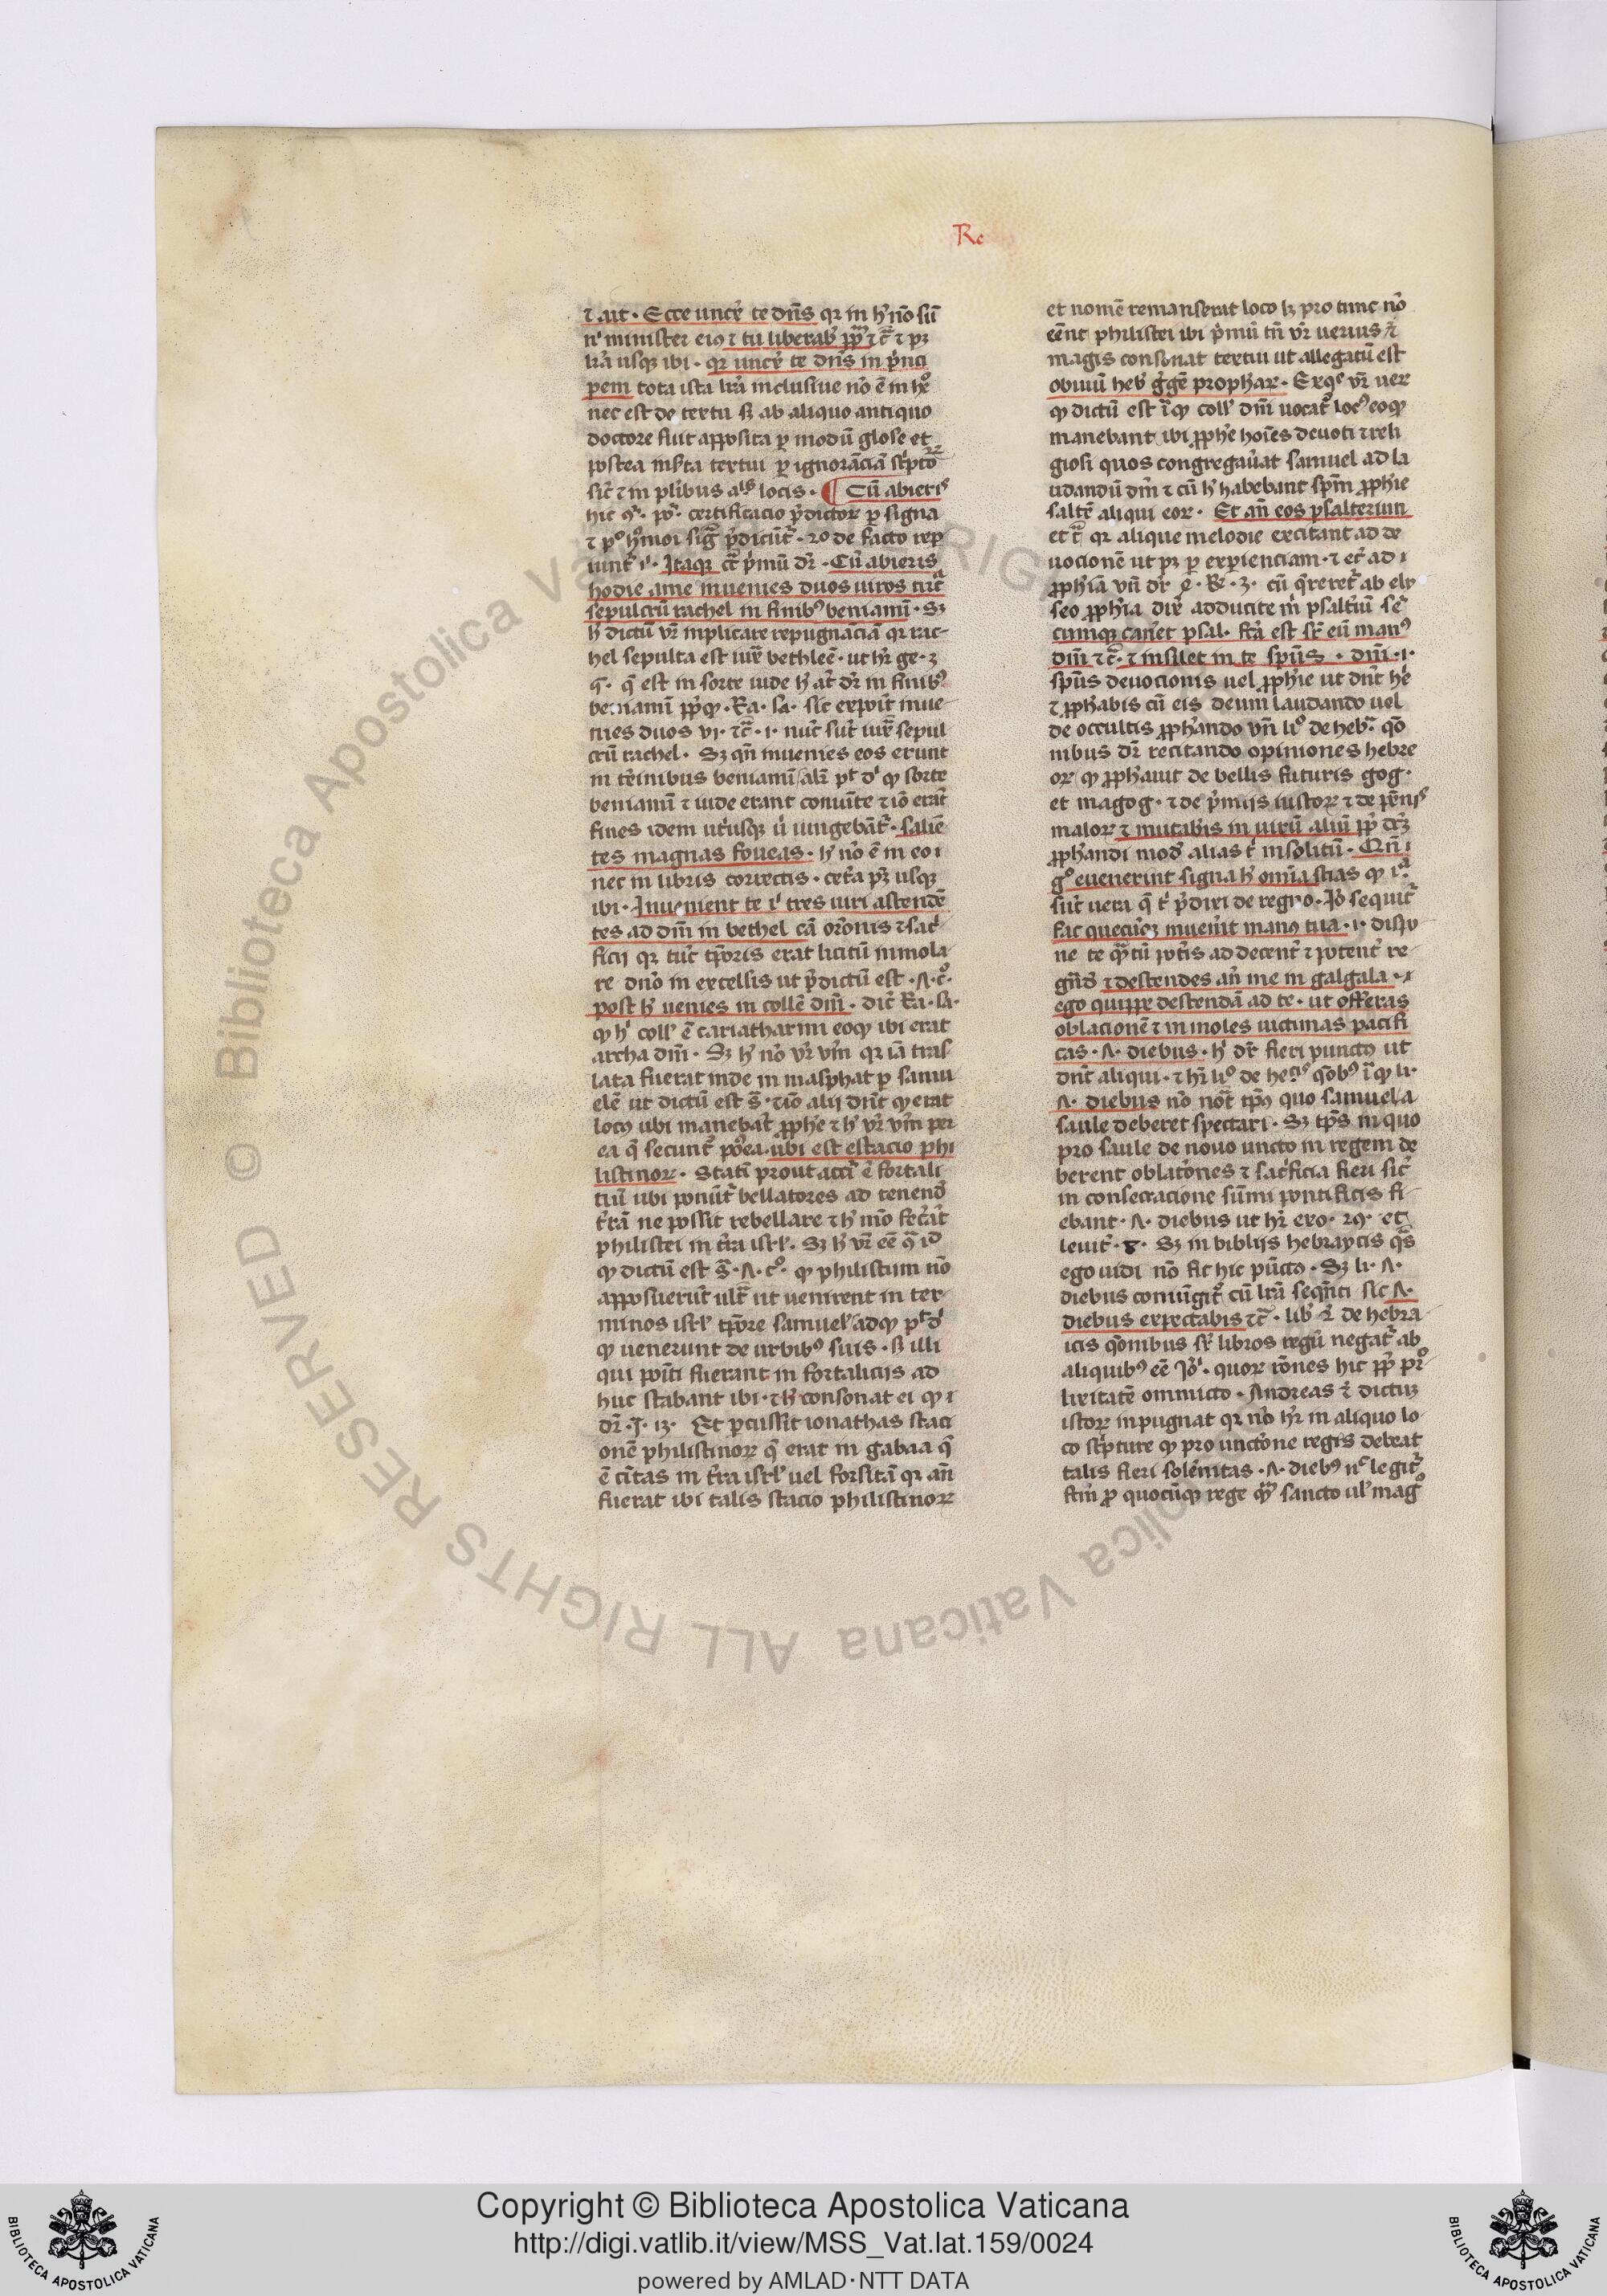 Re
⁊ ait · Ecce unxͭ te dn̄s qr in hͦ nō sū
nͥ minister eiꝰ ⁊ tu liberabͥ ⁊cͣ ⁊ pꝫ
lrā usqꝫ ibi · qr unxͭ te dn̄s in p̄nci
pem tota ista lrā inclusiue nō ē in heͦ
nec est de textu sꝫ ab aliquo antiquo
doctore fuit apposita ꝑ modū glose et
postea inserta textui ꝑ ignorāciā scͥptoꝝ
sic̄ ⁊ in plībus alͥs locis · ¶ Cū abierꝭ
hic certificacio p̄dictoꝝ ꝑ signa
p̄dicūtͬ · 2o de facto rep
iunt̄ Itaqꝫ p̄mū dr̄ · Cū abieris
hodie a me inuenies duos uiros iuxͣ
sepulcrū rachel in finibꝰ beniamī · Sꝫ
hͦ dictū vr̄ inplicare repugnāciā qr rac-
hel sepulta est iuxͣ bethleē · ut hr̄ ge · 3
q̄ est in sorte iude hͦ at̄ dr̄ in finibꝰ
beniamī · Ra · sa · sic exponit inue
nies duos vi · ⁊cͣ · i · nūc sūt iuxͣ sepul
crū rachel · Sꝫ qn̄ inuenies eos erunt
in tͥminibus beniamī alͥ pt̄ dͥ qꝫ sortes
beniamī ⁊ iude erant coniūcte ⁊ iō erāt
fines idem utͥusqꝫ ū iungebāt̄ · salie
tes magnas foueas · hͦ nō ē in
nec in libris correctis · cetͣa pꝫ usqꝫ
ibi · Inuenient te tres uiri ascende
tes ad dm̄ in bethel cā orōnis ⁊ sacͥ
ficij qr tūc tp̄oris erat licitū immola
re dn̄o in excelsis ut p̄dictū est · Λ · cͦ ·
post hͦ uenies in collē dm̄ · dic̄ Ra · sa ·
qꝫ hͥ collͥ ē cariathiarim eoqꝫ ibi erat
archa dm̄ · Sꝫ hͦ nō vr̄ vm̄ qr iā tras
lata fuerat inde in masphat ꝑ samu
elē ut dictū est s̄ · ⁊ iō alij dn̄t qꝫ erat
locꝰ ubi manebāt ꝓphe ⁊ hͦ vr̄ vm̄ per
ea q̄ secunt̄ poͥea · ubi est estacio phi
listinoꝝ · Statī prout acci ē fortali
ciū ubi ponūtͬ bellatores ad tenendͣ
tͥrā ne possit rebellare ⁊ hͦ mō fecāt
philistei in tͥra isrͥl · Sꝫ hͦ vr̄ eē q̄ id
qꝫ dictū est s̄ · Λ · cͦ · qꝫ philistiim nō
apposuerūt ultͣ ut uenirent in ter
minos isrͥl tp̄ore samuelͥ adqꝫ pt̄ dͥ
qꝫ uenerunt de urbibꝰ suis · sꝫ illi
qui poīti fuerant in fortalicijs ad
huc stabant ibi · ⁊ hͦ consonat ei qꝫ i
dr̄ · j · 13 · Et ꝑcussit ionathas staci
onē philistinoꝝ q̄ erat in gabaa q̄
ē cītas in tͥra isrͥl uel forsitā qr an̄
fuerat ibi talis stacio philistinoꝝ
et nomē remanserat loco lꝫ pro tunc nō
eēnt philistei ibi p̄mū tn̄ vr̄ uerius ⁊
magis consonat textui ut allegatū est
obuiū hebͥ gͥgē prophaꝝ · Ex qͥ vr̄ uer
qꝫ dictū est ī qꝫ collͥ dm̄ uocat̄ locꝰ eoqꝫ
manebant ibi ꝓphe hoīes deuoti ⁊ reli
giosi quos congregauͥat samuel ad la
udandū dm̄ ⁊ cū hͦ habebant spm̄ ꝓphie
saltē aliqui eoꝝ · Et an̄ eos psalteriun
et cͣ qr alique melodie excitant ad de
uocionē ut pꝫ ꝑ experienciam · ⁊ ec̄ ad i
ꝓphiā vn̄ dr̄ 4 · R · 3 · cū q̄reret̄ ab ely
seo ꝓphia dix̄ adducite m̄ psaltͥiū se
cumqꝫ canͥet psal · fcā est sꝫ eū manꝰ
dm̄ ⁊cͣ · ⁊ insilet in te spūs · dm̄ · i ·
spūs deuocionis uel ꝓphie ut dn̄t he
⁊ ꝓphabis cū eis deum laudando uel
de occultis ꝓphando vn̄ liͦ de hebͣ · qō
nibus dr̄ recitando opiniones hebre
oꝝ qꝫ ꝓphauit de bellis futuris gog ·
et magog · ⁊ de p̄mijs iustoꝝ ⁊ de penͥs
maloꝝ ⁊ mutabis in uirū aliū
ꝓphandi modͣ alias tͥ insolitū · Qn̄
gͦ euenerint signa hͦ omia scias qꝫ
sūt uera q̄ tͥ p̄dixi de regno · Iō sequitͬ
fac quecūqꝫ inuenͥit manꝰ tua · i · dispo
ne te q̄tū potͥs ad decent̄ ⁊ potent̄ re
gn̄dͣ ⁊ descendes an̄ me in galgala
ego quippe descendā ad te · ut offeras
oblacionē ⁊ inmoles uictimas pacifi
cas · Λ · diebus · hͦ dr̄ fieri punctꝰ ut
dn̄t aliqui · ⁊ hr̄ liͦ de heͨͥs qōbꝰ ī qꝫ li ·
Λ · diebus nō not̄ tp̄ꝰ quo samuel a
saule deberet spectari · Sꝫ tp̄s in quo
pro saule de nouo uncto in regem de
berent oblatōnes ⁊ sacͥficia fieri sic̄
in consecracione sūmi pontificis fi
ebant · Λ · diebus ut hr̄ exo · 29 · et
leuit̄ · 8 · Sꝫ in biblijs hebraycis qͣs
ego uidi nō fit hic pūctꝰ · Sꝫ li · Λ ·
diebus coniūgit̄ cū lrā seqn̄ti sic Λ ·
diebus expectabis ⁊cͣ · libͥ de hebra
icis qōnibus sꝫ libros regū negat̄ ab
aliquibꝰ eē Joͥ · quoꝝ rōnes hic ꝓpͥ pͥo
lixitatē ommitto · Andreas dictū
istoꝝ inpugnat qr nō hr̄ in aliquo lo
co scͥpture qꝫ pro unctōne regis debeat
talis fieri solēnitas · Λ · diebꝰ nͨ legitͬ
fcm̄ ꝓ quocūqꝫ rege sancto ulͥ magͦ
Copyright © Biblioteca Apostolica Vaticana
http://digi.vatlib.it/view/MSS_Vat.lat.159/0024
powered by AMLAD·NTT DATA
BIBLIOTECA APOSTOLICA VATICANA
BIBLIOTECA APOSTOLICA VATICANA
© Biblioteca Apostolica Vaticana ALL RIGHTS RESERVED